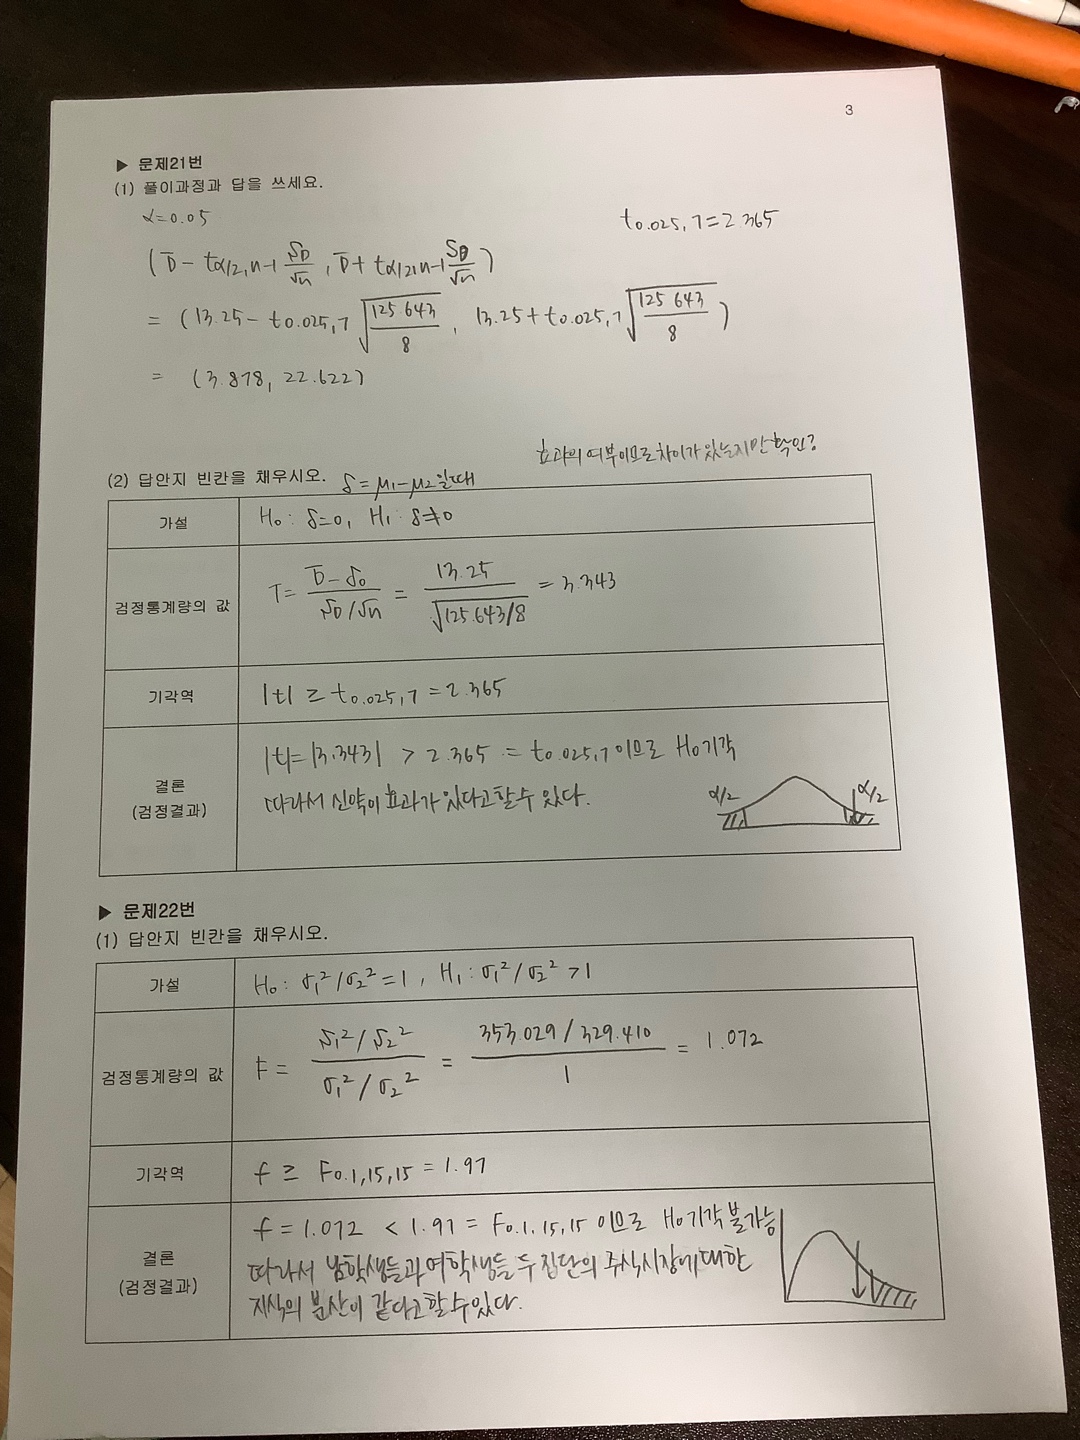 3
▶ 문제21번
(1) 풀이과정과 답을 쓰세요.
α=0.05
t0.025,7=2.365
(D̄ - tα/2,n-1 SD/√n , D̄ + tα/2,n-1 SD/√n)
= (13.25 - t0.025,7 √(125.643/8) , 13.25 + t0.025,7 √(125.643/8))
= (3.878, 22.622)
효과의 여부이므로 차이가 있는지만 확인?
(2) 답안지 빈칸을 채우시오. δ=μ1-μ2일때
가설 H0: δ=0, H1: δ≠0
검정통계량의 값 T = (D̄-δ0)/(SD/√n) = 13.25/√(125.643/8) = 3.343
기각역 |t| ≥ t0.025,7 = 2.365
결론
(검정결과)
|t|=|3.343| > 2.365 = t0.025,7 이므로 H0기각
따라서 신약이 효과가 있다고 할 수 있다.
α/2 α/2
▶ 문제22번
(1) 답안지 빈칸을 채우시오.
가설 H0: σ1²/σ2²=1, H1: σ1²/σ2²>1
검정통계량의 값 F = (S1²/S2²)/(σ1²/σ2²) = (353.029/329.410)/1 = 1.072
기각역 f ≥ F0.1,15,15 = 1.97
결론
(검정결과)
f = 1.072 < 1.97 = F0.1,15,15 이므로 H0기각 불가능
따라서 남학생들과 여학생들 두 집단의 주식시장에 대한
지식의 분산이 같다고 할 수 있다.